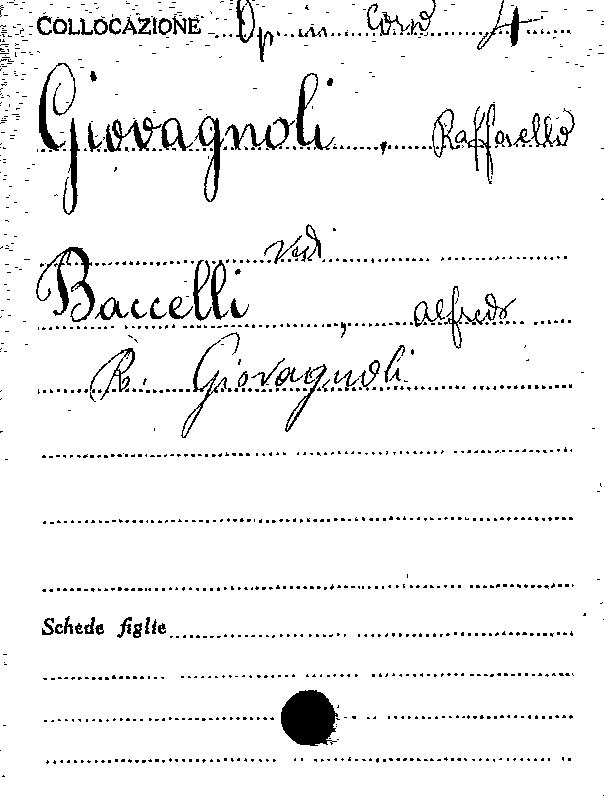 COLLOCAZIONE Op. in Corso 4
Giovagnoli, Raffaello
Vedi
Baccelli, Alfredo
R. Giovagnoli
Schede figlie